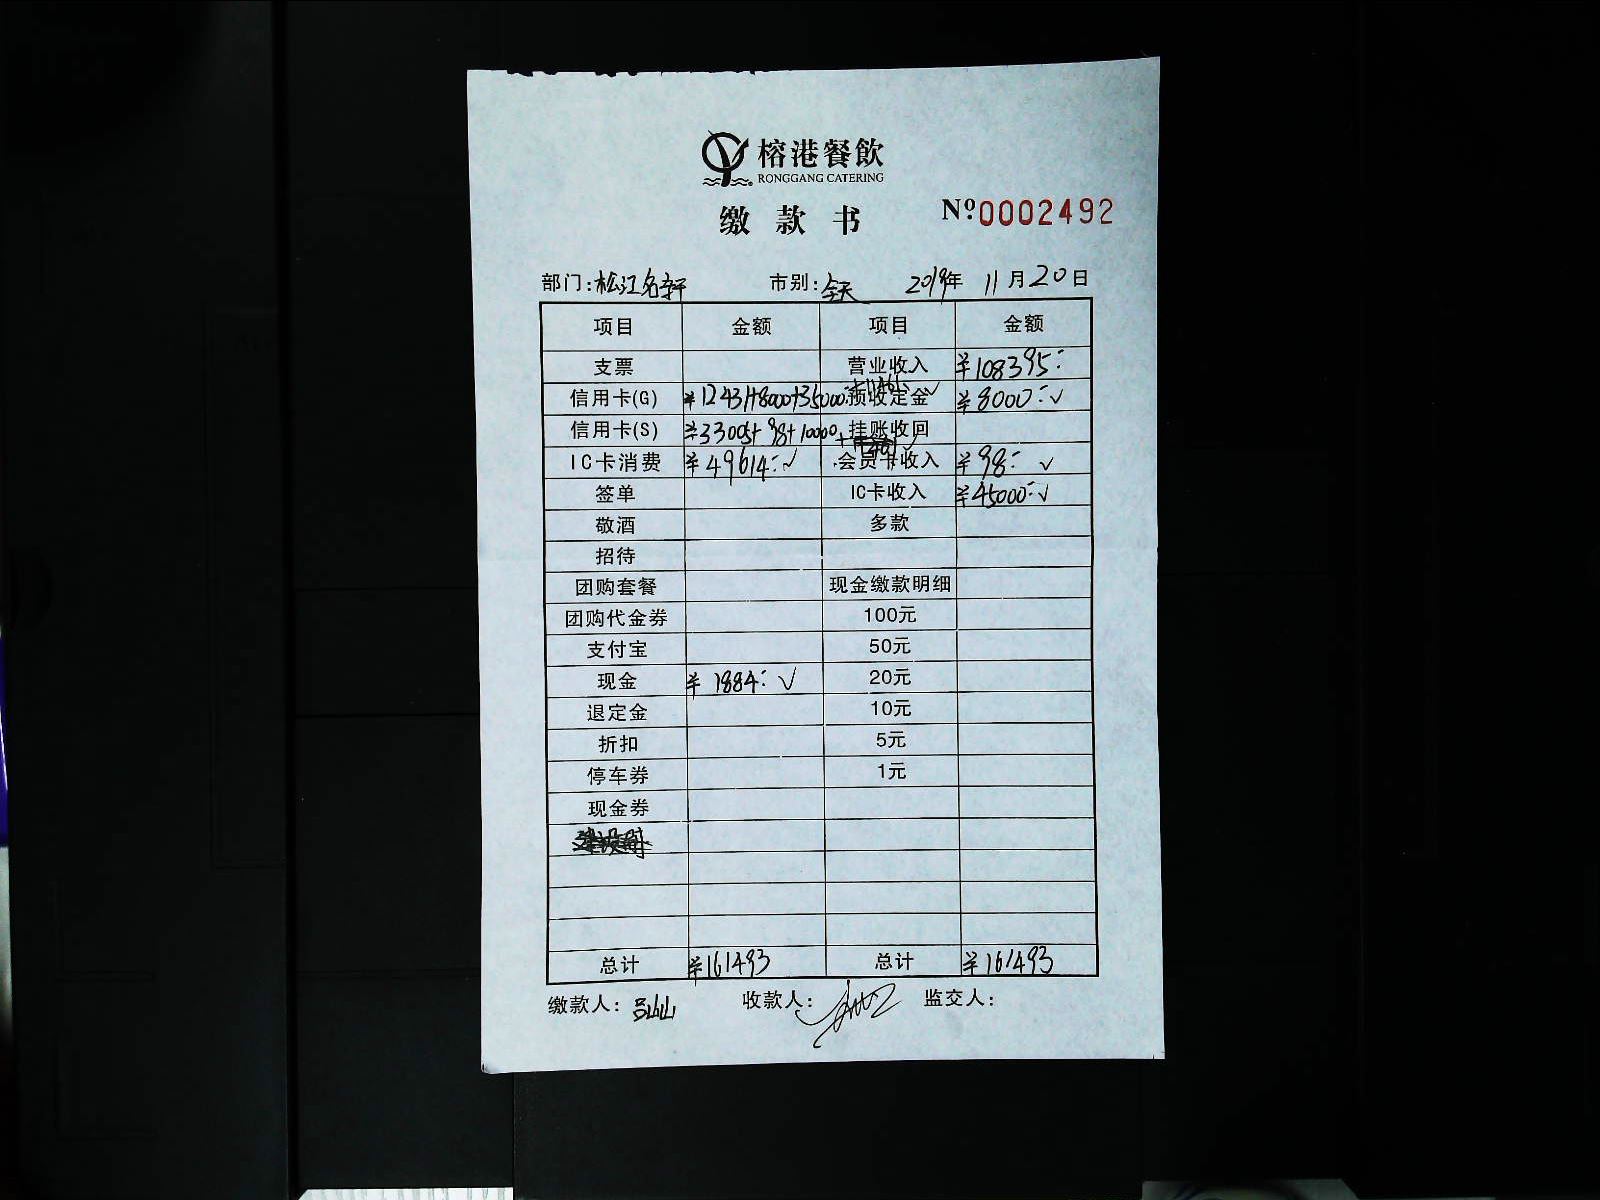 榕港餐飲
RONGGANG CATERING
缴款书 Nº 0002492
部门：松江名轩 市别：全天 2019年 11月20日
项目 金额 项目 金额
支票 营业收入 ¥108395:
信用卡(G) ¥12431+8000+35000 预收定金 ¥8000:✓
信用卡(S) ¥33005+98+10000+ 挂账收回
IC卡消费 ¥49614:✓ 会员卡收入 ¥98:✓
签单 IC卡收入 ¥45000:✓
敬酒 多款
招待
团购套餐 现金缴款明细
团购代金券 100元
支付宝 50元
现金 ¥1884:✓ 20元
退定金 10元
折扣 5元
停车券 1元
现金券
总计 ¥161493 总计 ¥161493
缴款人： 收款人： 监交人：